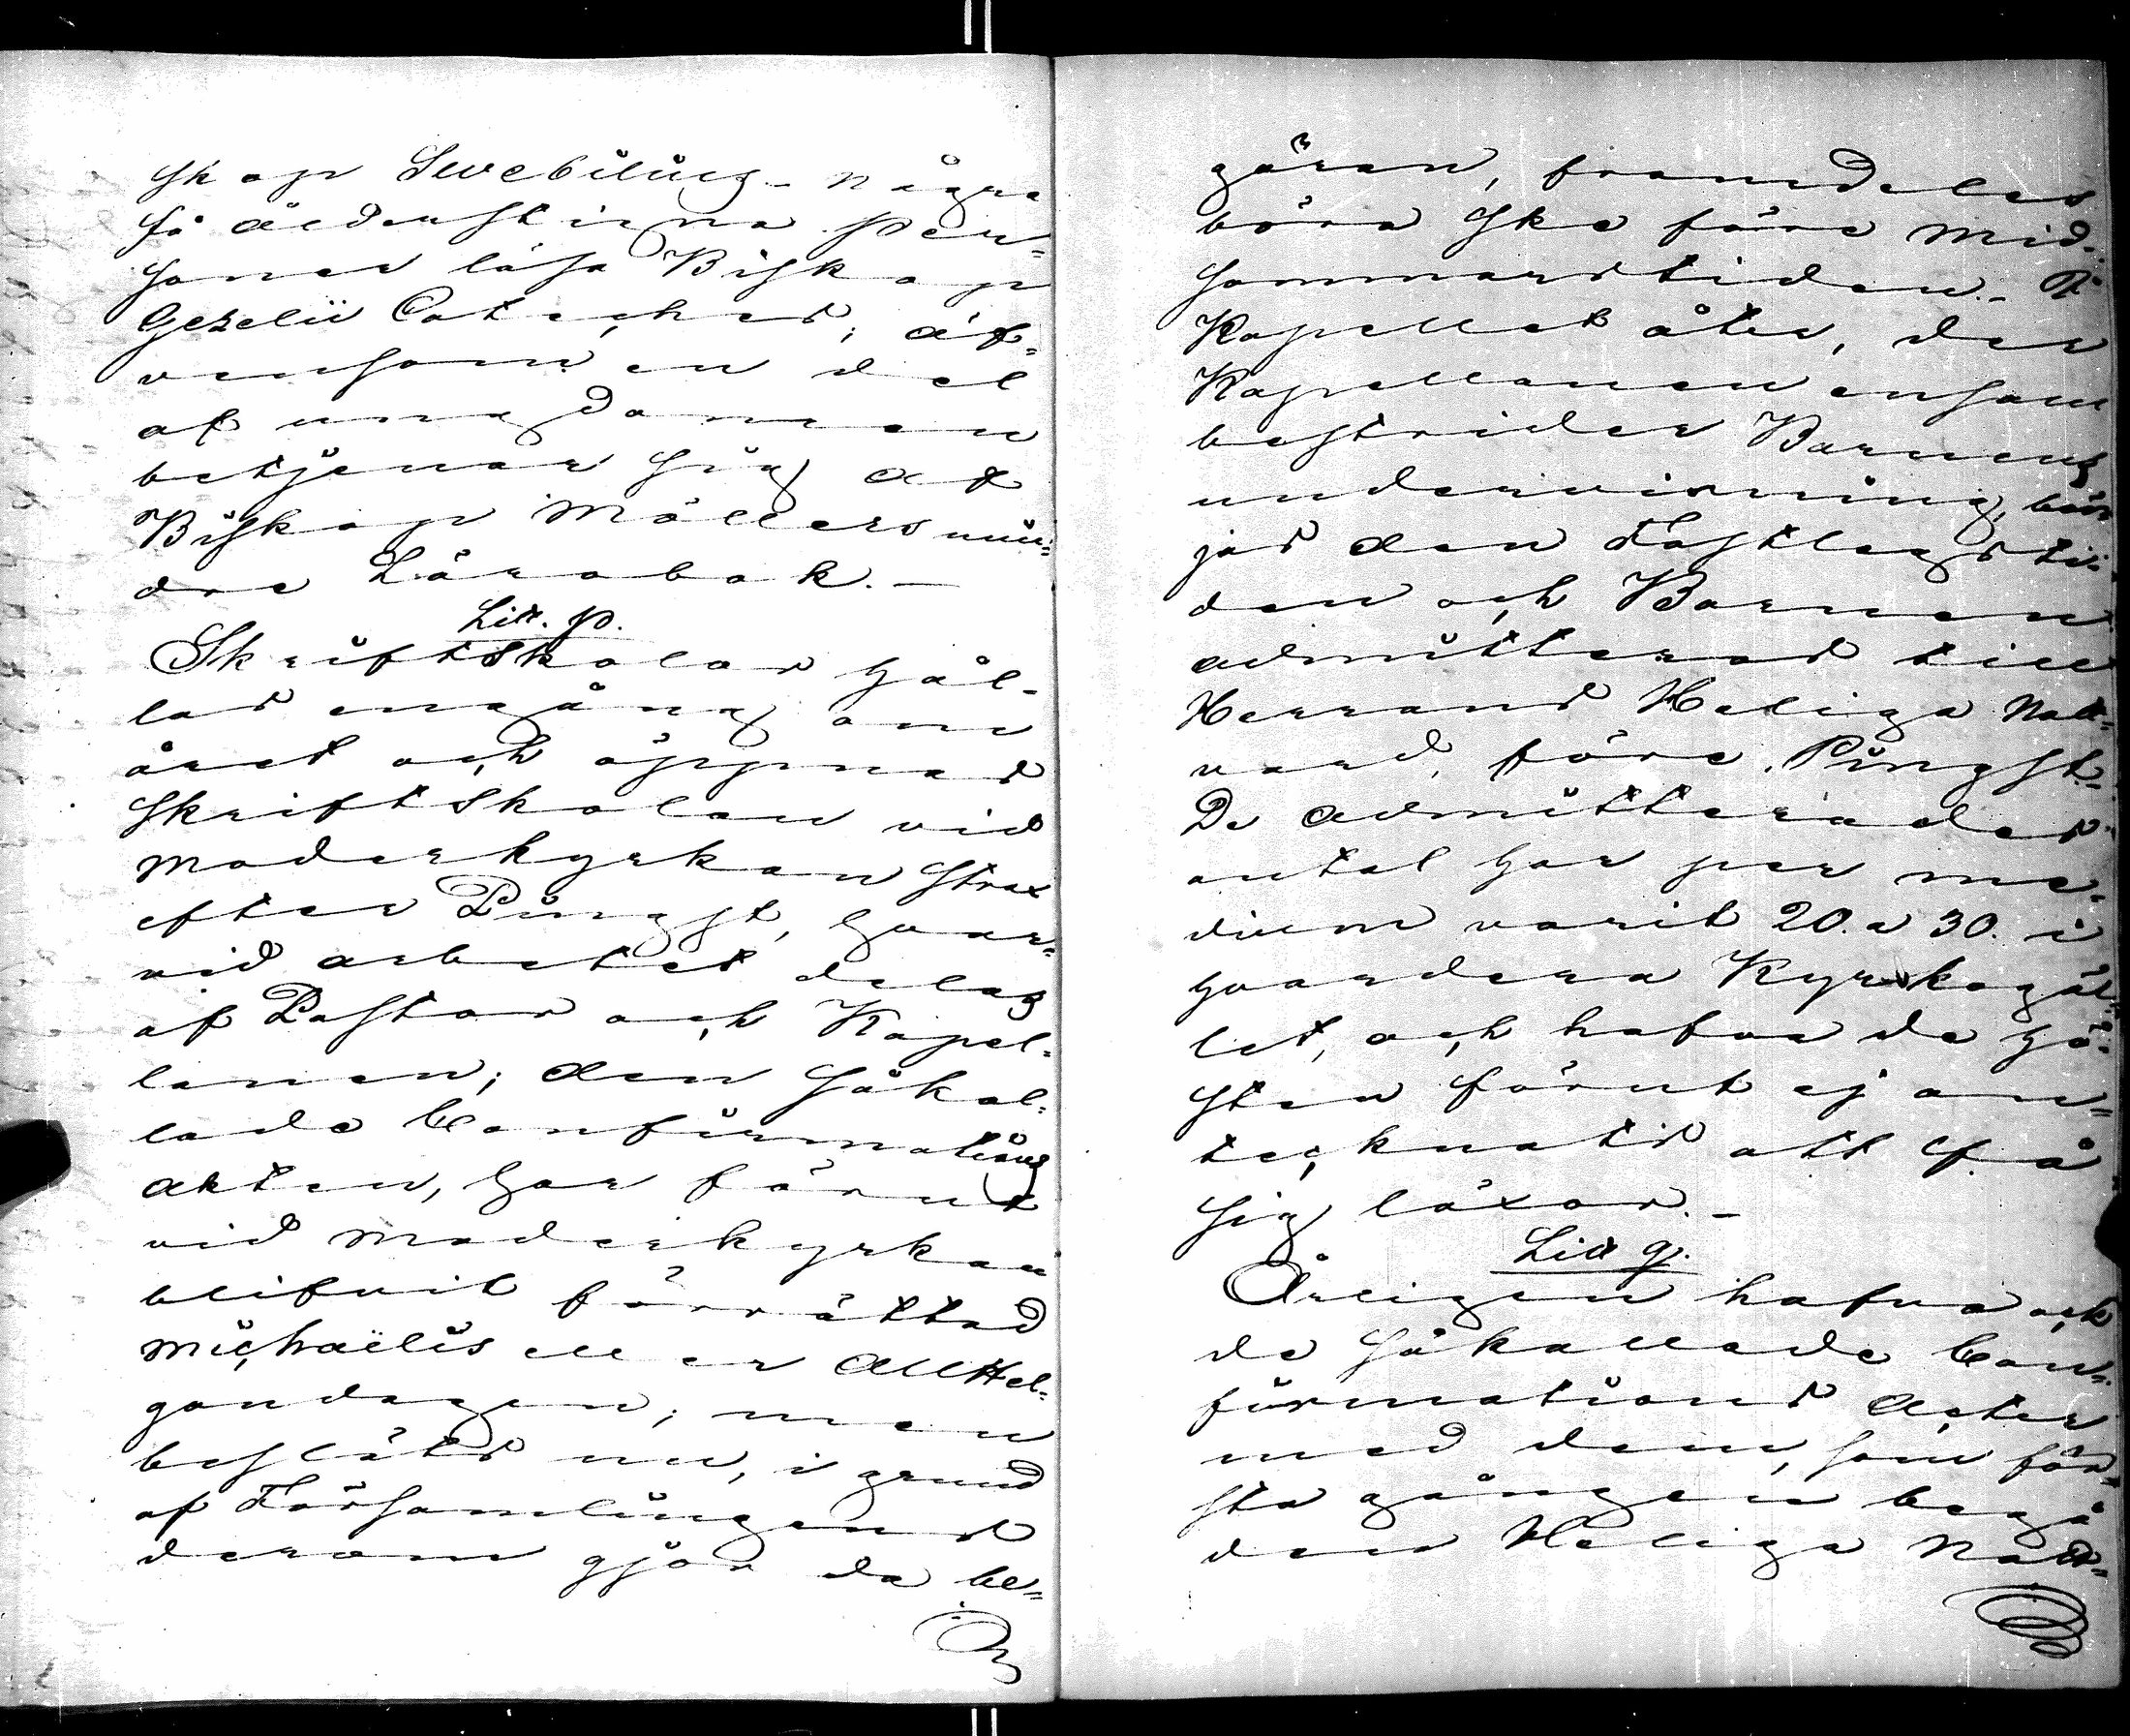 skop Swebilius - några
få ålderstigna per=
soner läsa Biskop
Gezelii Cateches; äf=
vensom en del
af ungdomen
betjenar sig af
Biskop Möllers min=
dre Lärobok. —
Litt. p.
Skriftskolor hål-
las engång om
året och öppnas
skriftskolan vid
moderkyrkan strax
efter Pingst, hvar=
vid arbetet delas
af Pastor och Kapel=
lanen; den såkal=
lade Confirmations
akten, har förut
vid moderkyrkan
blifvit förrättad
Michaëlis eller AllHel=
gondagen; men
beslöts nu, i grund
af Församlingens
derom gjorda be=
gäran, framdeles
böra ske före Mid=
sommarstiden. - I
Kapellet åter, der
Kapellanen ensam
bestrider Barnens
undervisning, bör=
jas den Fastlagsti=
den och Barnen
admitteras till
Herrans Heliga Natt=
vard, före Pingst.
De admitterades
antal har per me=
dium varit 20. a 30. i
hvardera Kyrkogäl=
let, och hafva de hö=
sten förut ej an=
tecknats att få
sig läxor. —
Litt q.
Årligen hafva ock
de såkallade Con=
firmations Acter
med dem, som för=
sta gången begå
den Heliga Natt=